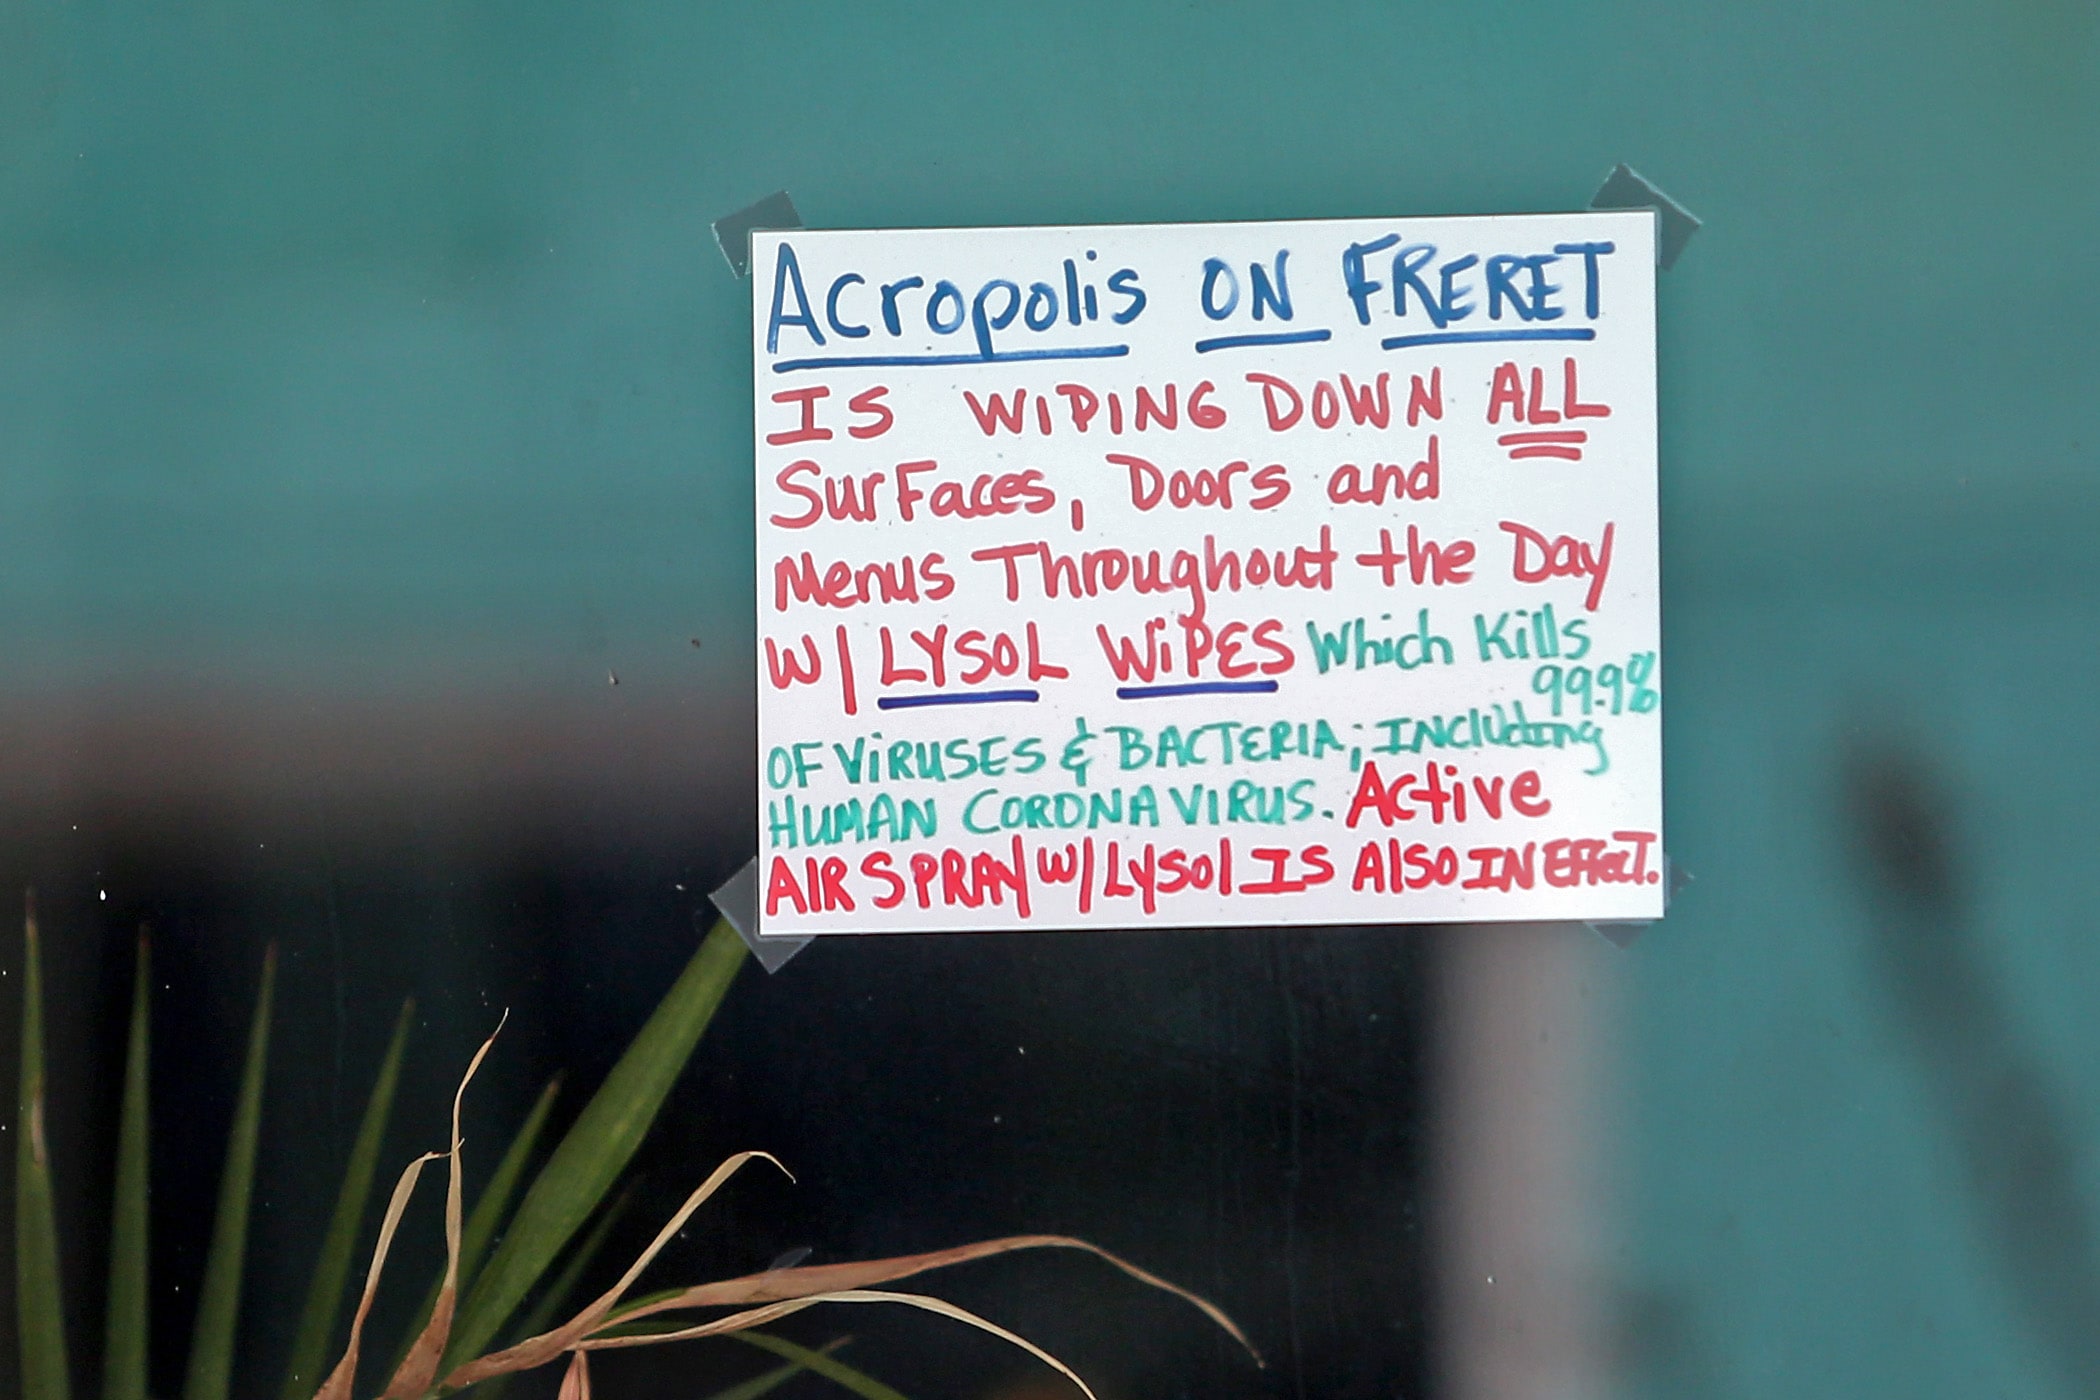 Acropolis ON FRERET
IS WIPING DOWN ALL
SurFaces, Doors and
Menus Throughout the Day
W/ LYSOL WiPES Which Kills
99.9%
OF ViRUSES & BACTERIA; INCluding
HUMAN CORONAVIRUS. Active
AIR SPRAY W/ LYSOl IS AlSO IN EFFecT.